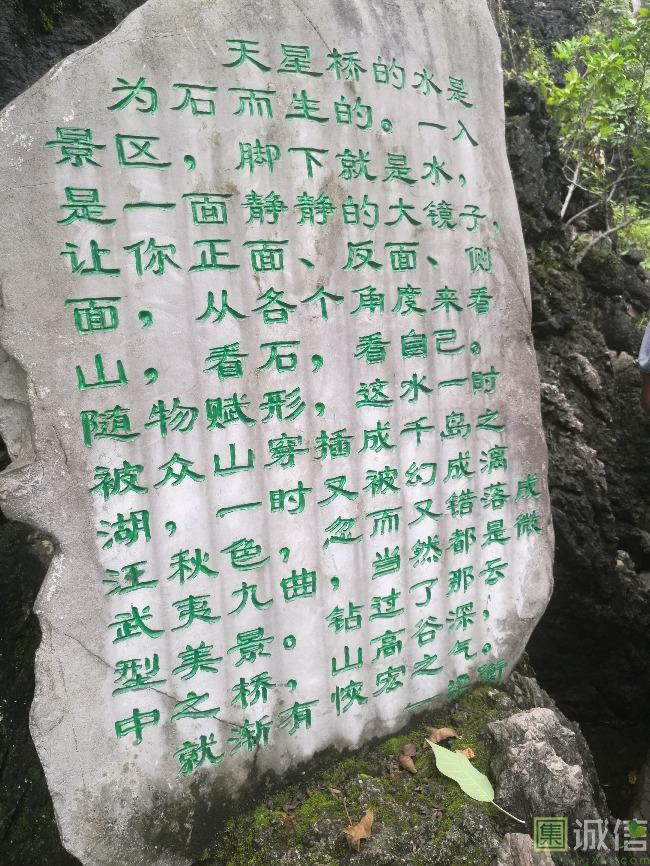 天星桥的水是
为石而生的。一入
景区，脚下就是水，
是一面静静的大镜子，
让你正面、反面、侧
面，从各个角度来看
山，看石，看自己。
随物赋形，这水一时
被众山穿插成千岛之
湖，一时又被幻成漓
江秋色，忽而又错落成
武夷九曲，当然都是微
型美景。钻过了那云
中之桥，山高谷深，
就渐有恢宏之气。
—梁衡
集诚信